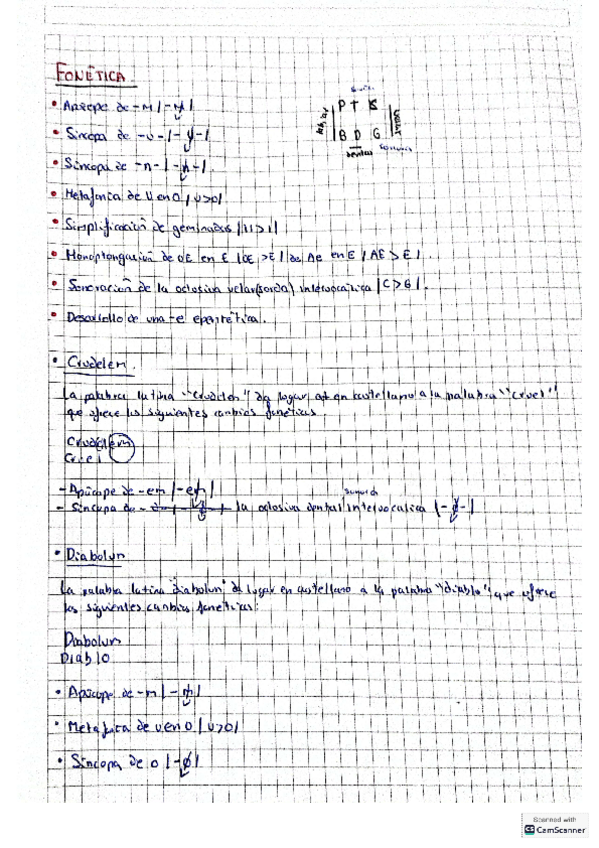 FONÉTICA
P T K
B D G
labial
velar
dental
sonora
• Apócope de -m |-m|
• Síncopa de -u- |-u-|
• Síncopa de -n- |-n-|
• Metafonía de U en O |U>O|
• Simplificación de geminadas |ll>l|
• Monoptongación de OE en E |OE>E| de AE en E |AE>E|.
• Sonoración de la oclusiva velar (sorda) intervocálica |C>G|.
• Desarrollo de una -e epentética.
• Crudelem.
La palabra latina "Crudelem" da lugar en castellano a la palabra "cruel"
que ofrece los siguientes cambios fonéticos.
Crudelem
Cruel
- Apócope de -em |-em|
sonora
- Síncopa de la oclusiva dental intervocálica |-d-|
• Diabolum
La palabra latina "diabolum" da lugar en castellano a la palabra "diablo", que ofrece
los siguientes cambios fonéticos:
Diabolum
Diablo
• Apócope de -m |-m|
• Metafonía de u en o |U>O|
• Síncopa de o |-o|
Scanned with
CS CamScanner